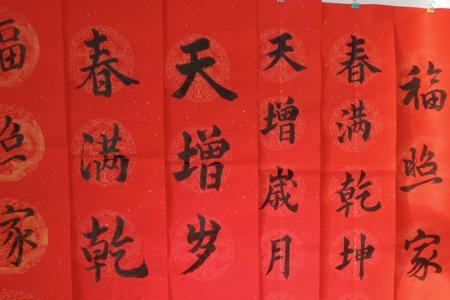 福照家
春满乾坤
天增歳月
天增岁
春满乾
福照家